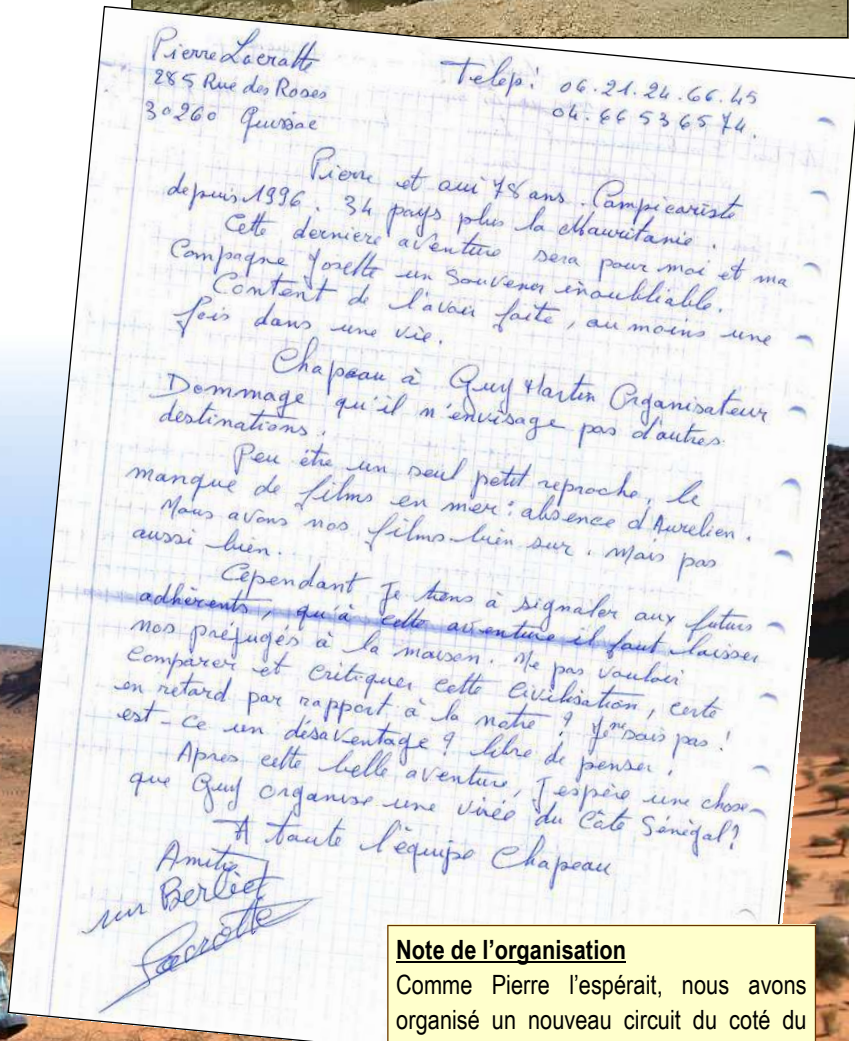 Pierre Lacrotte
Telep: 06.21.24.66.45
285 Rue des Roses
04.66 53 65 74.
30260 Quissac
Pierre et oui 78 ans. Campicariste
depuis 1996. 34 pays plus la Mauritanie.
Cette derniere aventure sera pour moi et ma
Compagne Josette un Souvenir inoubliable.
Content de l'avoir faite, au moins une
fois dans une vie.
Chapeau à Guy Martin Organisateur
Dommage qu'il n'envisage pas d'autres
destinations.
Peu être un seul petit reproche, le
manque de films en mer: absence d'Aurelien.
Nous avons nos films bien sur. Mais pas
aussi bien.
Cependant Je tiens à signaler aux futurs
adhérents, qu'à cette aventure il faut laisser
nos préjugés à la maison. Ne pas vouloir
Comparer et Critiquer cette Civilisation, certe
en retard par rapport à la notre? Je ne sais pas!
est-ce un désaventage? libre de penser.
Apres cette belle aventure, J'espère une chose
que Guy organise une virée du Côte Sénégal?
A toute l'équipe Chapeau
Amitie
Lacrotte
Note de l'organisation
Comme Pierre l'espérait, nous avons
organisé un nouveau circuit du coté du